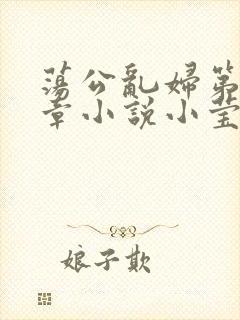 蕩公亂婦第
章小說小莹
娘子欺